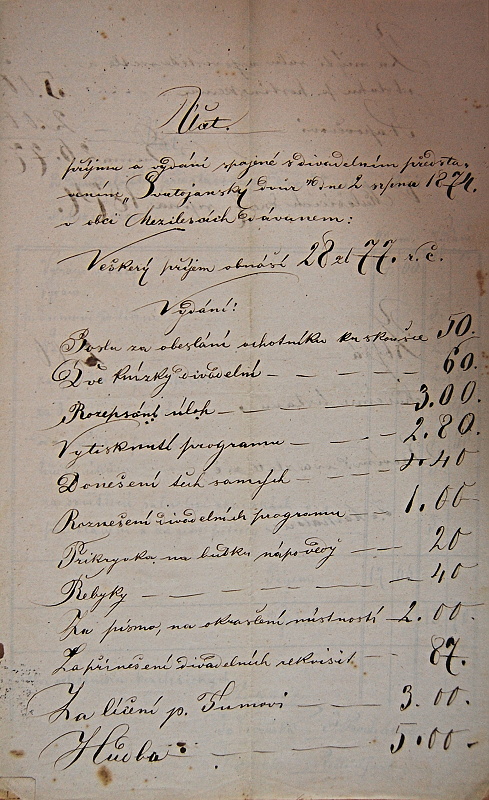 Účet.
příjmu a vydání spojené s divadelním předsta-
vením „Svatojanský dvůr" dne 2 srpna 1874.
v obci Mezilesích dávaném:
Veškerý příjem obnáší 28 zl 77. r. č.
Vydání:
Poslu za obeslání ochotníku ku skoušce 50.
Dvě knížky divadelní — — — — 60.
Rozepsání úloh — — — — 3.00.
Vytisknutí programu — — — 2.80.
Donešení těch samých — — — 40
Roznešení divadelních programu — — 1.00
Přikryvka na butku nápovědy — — 20
Řebyky — — — — — 40
Za písmo, na okrašlení místností — 2.00.
Za přinešení divadelních rekvisit — 87.
Za líčení p. Tumovi — — 3.00.
Hudba — — — 5.00.